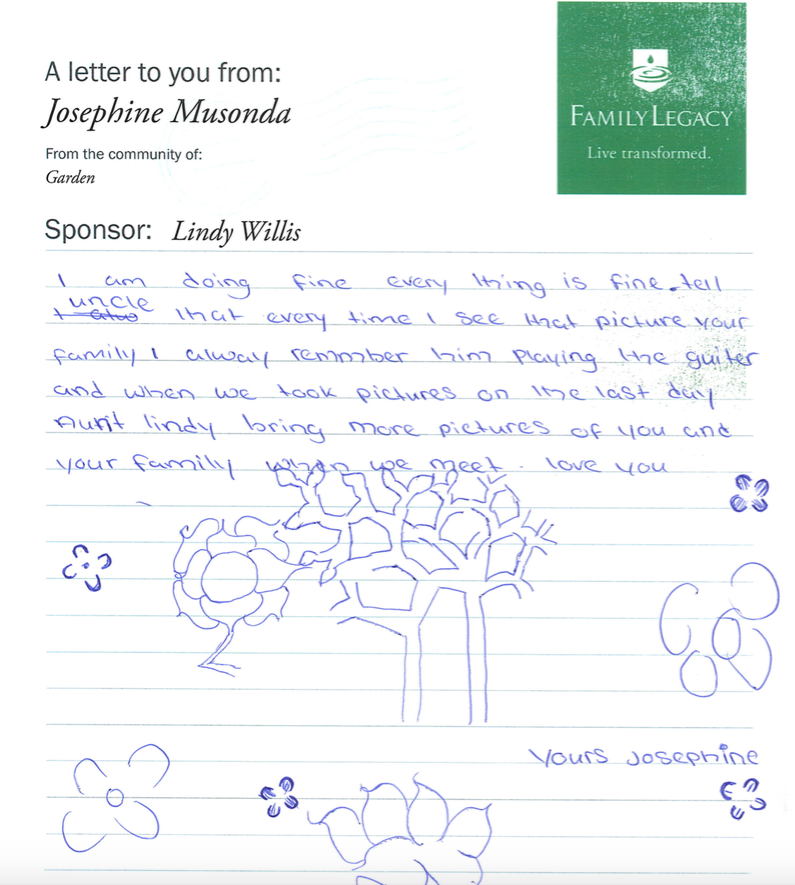 A letter to you from:
Josephine Musonda
From the community of:
Garden
FAMILY LEGACY
Live transformed.
Sponsor: Lindy Willis
I am doing fine every thing is fine. tell
uncle
that every time I see that picture your
family I alway remmber him playing the guiter
and when we took pictures on the last day
Aunt lindy bring more pictures of you and
your family when we meet. love you
Yours Josephine